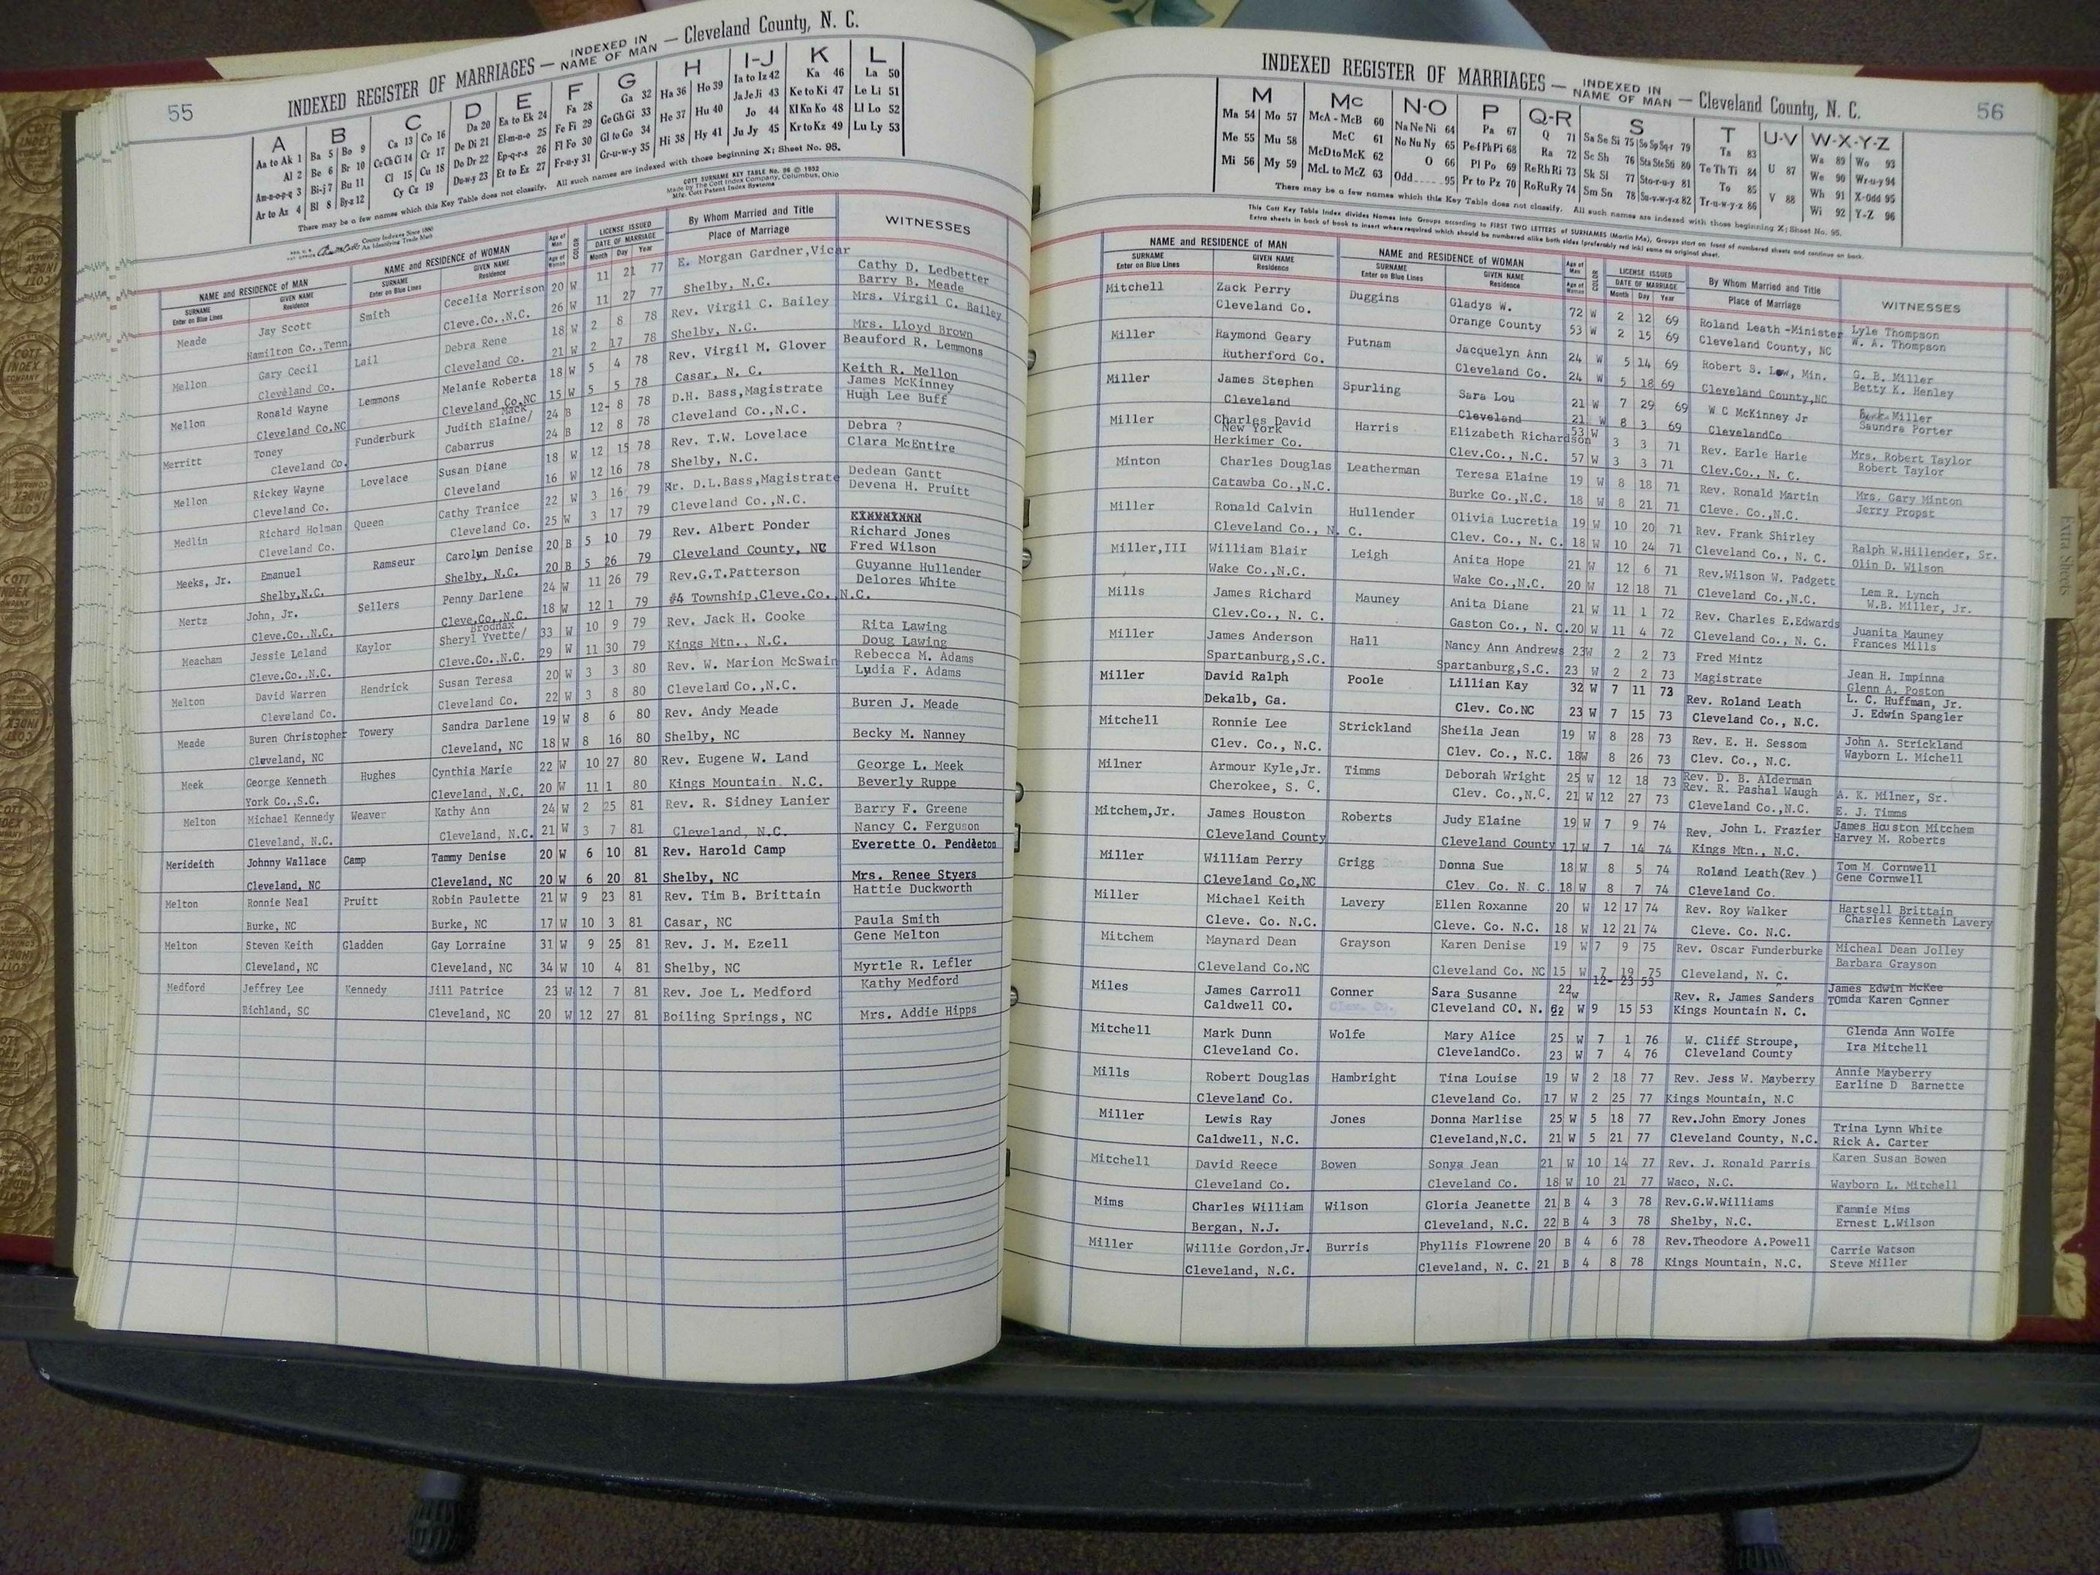 55
INDEXED REGISTER OF MARRIAGES — INDEXED IN NAME OF MAN — Cleveland County, N. C.
A B C D E F G H I-J K L
Aa to Ak 1 Ba 5 Bo 9 Ca 13 Co 16 Da 20 Ea to Ek 24 Fa 28 Ga 32 Ha 36 Ho 39 Ia to Iz 42 Ka 46 La 50
Al 2 Be 6 Br 10 Ce Ch Ci 14 Cr 17 De Di 21 El-m-n-o 25 Fe Fi 29 Ge Gh Gi 33 He 37 Hu 40 Ja Je Ji 43 Ke to Ki 47 Le Li 51
Am-n-o-p-q 3 Bi-j 7 Bu 11 Cl 15 Cu 18 Do Dr 22 Ep-q-r-s 26 Fl Fo 30 Gl to Go 34 Hi 38 Hy 41 Jo 44 Kl Kn Ko 48 Ll Lo 52
Ar to Az 4 Bl 8 By-z 12 Cy Cz 19 Du-w-y 23 Et to Ez 27 Fr-u-y 31 Gr-u-w-y 35 Ju Jy 45 Kr to Kz 49 Lu Ly 53
There may be a few names which this Key Table does not classify. All such names are indexed with those beginning X; Sheet No. 95.
COTT SURNAME KEY TABLE No. 96 © 1952
Made by The Cott Index Company, Columbus, Ohio
Mfg. Cott Patent Index Systems
County Indexes Since 1880
An Identifying Trade Mark
NAME and RESIDENCE OF MAN NAME and RESIDENCE OF WOMAN Age of Man COLOR LICENSE ISSUED By Whom Married and Title WITNESSES
SURNAME Enter on Blue Lines GIVEN NAME Residence SURNAME Enter on Blue Lines GIVEN NAME Residence Age of Woman DATE OF MARRIAGE Month Day Year Place of Marriage
Meade Jay Scott Smith Cecelia Morrison 20 W 11 21 77 E. Morgan Gardner,Vicar Cathy D. Ledbetter
Hamilton Co.,Tenn Cleve.Co.,N.C. 26 W 11 27 77 Shelby, N.C. Barry B. Meade
Mellon Gary Cecil Lail Debra Rene 18 W 2 8 78 Rev. Virgil C. Bailey Mrs. Virgil C. Bailey
Cleveland Co. Cleveland Co. 21 W 2 17 78 Shelby, N.C. Mrs. Lloyd Brown
Mellon Ronald Wayne Lemmons Melanie Roberta 18 W 5 4 78 Rev. Virgil M. Glover Beauford R. Lemmons
Cleveland Co.NC Cleveland Co.NC 15 W 5 5 78 Casar, N. C. Keith R. Mellon
Merritt Toney Funderburk Judith Elaine/ Mack 24 B 12- 8 78 D.H. Bass,Magistrate James McKinney
Cleveland Co. Cabarrus 24 B 12 8 78 Cleveland Co.,N.C. Hugh Lee Buff
Mellon Rickey Wayne Lovelace Susan Diane 18 W 12 15 78 Rev. T.W. Lovelace Debra ?
Cleveland Co. Cleveland 16 W 12 16 78 Shelby, N.C. Clara McEntire
Medlin Richard Holman Queen Cathy Tranice 22 W 3 16 79 Mr. D.L.Bass,Magistrate Dedean Gantt
Cleveland Co. Cleveland Co. 25 W 3 17 79 Cleveland Co.,N.C. Devena H. Pruitt
Meeks, Jr. Emanuel Ramseur Carolyn Denise 20 B 5 10 79 Rev. Albert Ponder Richard Jones
Shelby,N.C. Shelby, N.C. 20 B 5 26 79 Cleveland County, NC Fred Wilson
Mertz John, Jr. Sellers Penny Darlene 24 W 11 26 79 Rev.G.T.Patterson Guyanne Hullender
Cleve.Co.,N.C. Cleve.Co.,N.C. 18 W 12 1 79 #4 Township,Cleve.Co.,N.C. Delores White
Meacham Jessie Leland Kaylor Sheryl Yvette/ Brodnax 33 W 10 9 79 Rev. Jack H. Cooke Rita Lawing
Cleve.Co.,N.C. Cleve.Co.,N.C. 29 W 11 30 79 Kings Mtn., N.C. Doug Lawing
Melton David Warren Hendrick Susan Teresa 20 W 3 3 80 Rev. W. Marion McSwain Rebecca M. Adams
Cleveland Co. Cleveland Co. 22 W 3 8 80 Cleveland Co.,N.C. Lydia F. Adams
Meade Buren Christopher Towery Sandra Darlene 19 W 8 6 80 Rev. Andy Meade Buren J. Meade
Cleveland, NC Cleveland, NC 18 W 8 16 80 Shelby, NC Becky M. Nanney
Meek George Kenneth Hughes Cynthia Marie 22 W 10 27 80 Rev. Eugene W. Land George L. Meek
York Co.,S.C. Cleveland, N.C. 20 W 11 1 80 Kings Mountain N.C. Beverly Ruppe
Melton Michael Kennedy Weaver Kathy Ann 24 W 2 25 81 Rev. R. Sidney Lanier Barry F. Greene
Cleveland, N.C. Cleveland, N.C. 21 W 3 7 81 Cleveland, N.C. Nancy C. Ferguson
Merideith Johnny Wallace Camp Tammy Denise 20 W 6 10 81 Rev. Harold Camp Everette O. Pendleton
Cleveland, NC Cleveland, NC 20 W 6 20 81 Shelby, NC Mrs. Renee Styers
Melton Ronnie Neal Pruitt Robin Paulette 21 W 9 23 81 Rev. Tim B. Brittain Hattie Duckworth
Burke, NC Burke, NC 17 W 10 3 81 Casar, NC Paula Smith
Melton Steven Keith Gladden Gay Lorraine 31 W 9 25 81 Rev. J. M. Ezell Gene Melton
Cleveland, NC Cleveland, NC 34 W 10 4 81 Shelby, NC Myrtle R. Lefler
Medford Jeffrey Lee Kennedy Jill Patrice 23 W 12 7 81 Rev. Joe L. Medford Kathy Medford
Richland, SC Cleveland, NC 20 W 12 27 81 Boiling Springs, NC Mrs. Addie Hipps
56
INDEXED REGISTER OF MARRIAGES — INDEXED IN NAME OF MAN — Cleveland County, N. C.
M Mc N-O P Q-R S T U-V W-X-Y-Z
Ma 54 Mo 57 McA - McB 60 Na Ne Ni 64 Pa 67 Q 71 Sa Se Si 75 So Sp Sq-r 79 Ta 83 U 87 Wa 89 Wo 93
Me 55 Mu 58 McC 61 No Nu Ny 65 Pe-f Ph Pi 68 Ra 72 Sc Sh 76 Sta Ste Sti 80 Te Th Ti 84 V 88 We 90 Wr-u-y 94
Mi 56 My 59 McD to McK 62 O 66 Pl Po 69 Re Rh Ri 73 Sk Sl 77 Sto-r-u-y 81 To 85 Wh 91 X-Odd 95
McL to McZ 63 Odd 95 Pr to Pz 70 Ro Ru Ry 74 Sm Sn 78 Su-v-w-y-z 82 Tr-u-w-y-z 86 Wi 92 Y-Z 96
There may be a few names which this Key Table does not classify. All such names are indexed with those beginning X; Sheet No. 95.
This Cott Key Table Index divides Names into Groups according to FIRST TWO LETTERS of SURNAMES (Martin Ma), Groups start on front of numbered sheets and continue on back.
Extra sheets in back of book to insert where required which should be numbered alike both sides (preferably red ink) same as original sheet.
NAME and RESIDENCE OF MAN NAME and RESIDENCE OF WOMAN Age of Man COLOR LICENSE ISSUED By Whom Married and Title WITNESSES
SURNAME Enter on Blue Lines GIVEN NAME Residence SURNAME Enter on Blue Lines GIVEN NAME Residence Age of Woman DATE OF MARRIAGE Month Day Year Place of Marriage
Mitchell Zack Perry Duggins Gladys W. 72 W 2 12 69 Roland Leath -Minister Lyle Thompson
Cleveland Co. Orange County 53 W 2 15 69 Cleveland County, NC W. A. Thompson
Miller Raymond Geary Putnam Jacquelyn Ann 24 W 5 14 69 Robert S. Low, Min. G. B. Miller
Rutherford Co. Cleveland Co. 24 W 5 18 69 Cleveland County,NC Betty K. Henley
Miller James Stephen Spurling Sara Lou 21 W 7 29 69 W C McKinney Jr Miller
Cleveland Cleveland 21 W 8 3 69 ClevelandCo Saundra Porter
Miller Charles David Harris Elizabeth Richardson 53 W 3 3 71 Rev. Earle Harie Mrs. Robert Taylor
New York Herkimer Co. Clev.Co., N.C. 57 W 3 3 71 Clev.Co., N. C. Robert Taylor
Minton Charles Douglas Leatherman Teresa Elaine 19 W 8 18 71 Rev. Ronald Martin Mrs. Gary Minton
Catawba Co.,N.C. Burke Co.,N.C. 18 W 8 21 71 Cleve. Co.,N.C. Jerry Propst
Miller Ronald Calvin Hullender Olivia Lucretia 19 W 10 20 71 Rev. Frank Shirley Ralph W.Hillender, Sr.
Cleveland Co., N. C. Clev. Co., N. C. 18 W 10 24 71 Cleveland Co., N. C. Olin D. Wilson
Miller,III William Blair Leigh Anita Hope 21 W 12 6 71 Rev.Wilson W. Padgett Lem R. Lynch
Wake Co.,N.C. Wake Co.,N.C. 20 W 12 18 71 Cleveland Co.,N.C. W.B. Miller, Jr.
Mills James Richard Mauney Anita Diane 21 W 11 1 72 Rev. Charles E.Edwards Juanita Mauney
Clev.Co., N. C. Gaston Co., N. C. 20 W 11 4 72 Cleveland Co., N. C. Frances Mills
Miller James Anderson Hall Nancy Ann Andrews 23W 2 2 73 Fred Mintz Jean H. Impinna
Spartanburg,S.C. Spartanburg,S.C. 23 W 2 2 73 Magistrate Glenn A. Poston
Miller David Ralph Poole Lillian Kay 32 W 7 11 73 Rev. Roland Leath L. C. Huffman, Jr.
Dekalb, Ga. Clev. Co.NC 23 W 7 15 73 Cleveland Co., N.C. J. Edwin Spangler
Mitchell Ronnie Lee Strickland Sheila Jean 19 W 8 28 73 Rev. E. H. Sessom John A. Strickland
Clev. Co., N.C. Clev. Co., N.C. 18W 8 26 73 Clev. Co., N.C. Wayborn L. Michell
Milner Armour Kyle,Jr. Timms Deborah Wright 25 W 12 18 73 Rev. D. B. Alderman Rev. R. Pashal Waugh A. K. Milner, Sr.
Cherokee, S. C. Clev. Co.,N.C. 21 W 12 27 73 Cleveland Co.,N.C. E. J. Timms
Mitchem,Jr. James Houston Roberts Judy Elaine 19 W 7 9 74 Rev. John L. Frazier James Houston Mitchem
Cleveland County Cleveland County 17 W 7 14 74 Kings Mtn., N.C. Harvey M. Roberts
Miller William Perry Grigg Donna Sue 18 W 8 5 74 Roland Leath(Rev ) Tom M. Cornwell
Cleveland Co,NC Clev. Co. N. C. 18 W 8 7 74 Cleveland Co. Gene Cornwell
Miller Michael Keith Lavery Ellen Roxanne 20 W 12 17 74 Rev. Roy Walker Hartsell Brittain
Cleve. Co. N.C. Cleve. Co. N.C. 18 W 12 21 74 Cleve. Co. N.C. Charles Kenneth Lavery
Mitchem Maynard Dean Grayson Karen Denise 19 W 7 9 75 Rev. Oscar Funderburke Micheal Dean Jolley
Cleveland Co.NC Cleveland Co. NC 15 W 7 19 75 Cleveland, N. C. Barbara Grayson
Miles James Carroll Conner Sara Susanne 22 W 12- 23 53 Rev. R. James Sanders James Edwin McKee
Caldwell CO. Cleveland CO. N. 22 W 9 15 53 Kings Mountain N. C. Tomda Karen Conner
Mitchell Mark Dunn Wolfe Mary Alice 25 W 7 1 76 W. Cliff Stroupe, Glenda Ann Wolfe
Cleveland Co. ClevelandCo. 23 W 7 4 76 Cleveland County Ira Mitchell
Mills Robert Douglas Hambright Tina Louise 19 W 2 18 77 Rev. Jess W. Mayberry Annie Mayberry
Cleveland Co. Cleveland Co. 17 W 2 25 77 Kings Mountain, N.C Earline D Barnette
Miller Lewis Ray Jones Donna Marlise 25 W 5 18 77 Rev.John Emory Jones Trina Lynn White
Caldwell, N.C. Cleveland,N.C. 21 W 5 21 77 Cleveland County, N.C. Rick A. Carter
Mitchell David Reece Bowen Sonya Jean 21 W 10 14 77 Rev. J. Ronald Parris Karen Susan Bowen
Cleveland Co. Cleveland Co. 18 W 10 21 77 Waco, N.C. Wayborn L. Mitchell
Mims Charles William Wilson Gloria Jeanette 21 B 4 3 78 Rev.G.W.Williams Fammie Mims
Bergan, N.J. Cleveland, N.C. 22 B 4 3 78 Shelby, N.C. Ernest L.Wilson
Miller Willie Gordon,Jr. Burris Phyllis Flowrene 20 B 4 6 78 Rev.Theodore A.Powell Carrie Watson
Cleveland, N.C. Cleveland, N. C. 21 B 4 8 78 Kings Mountain, N.C. Steve Miller
Extra Sheets